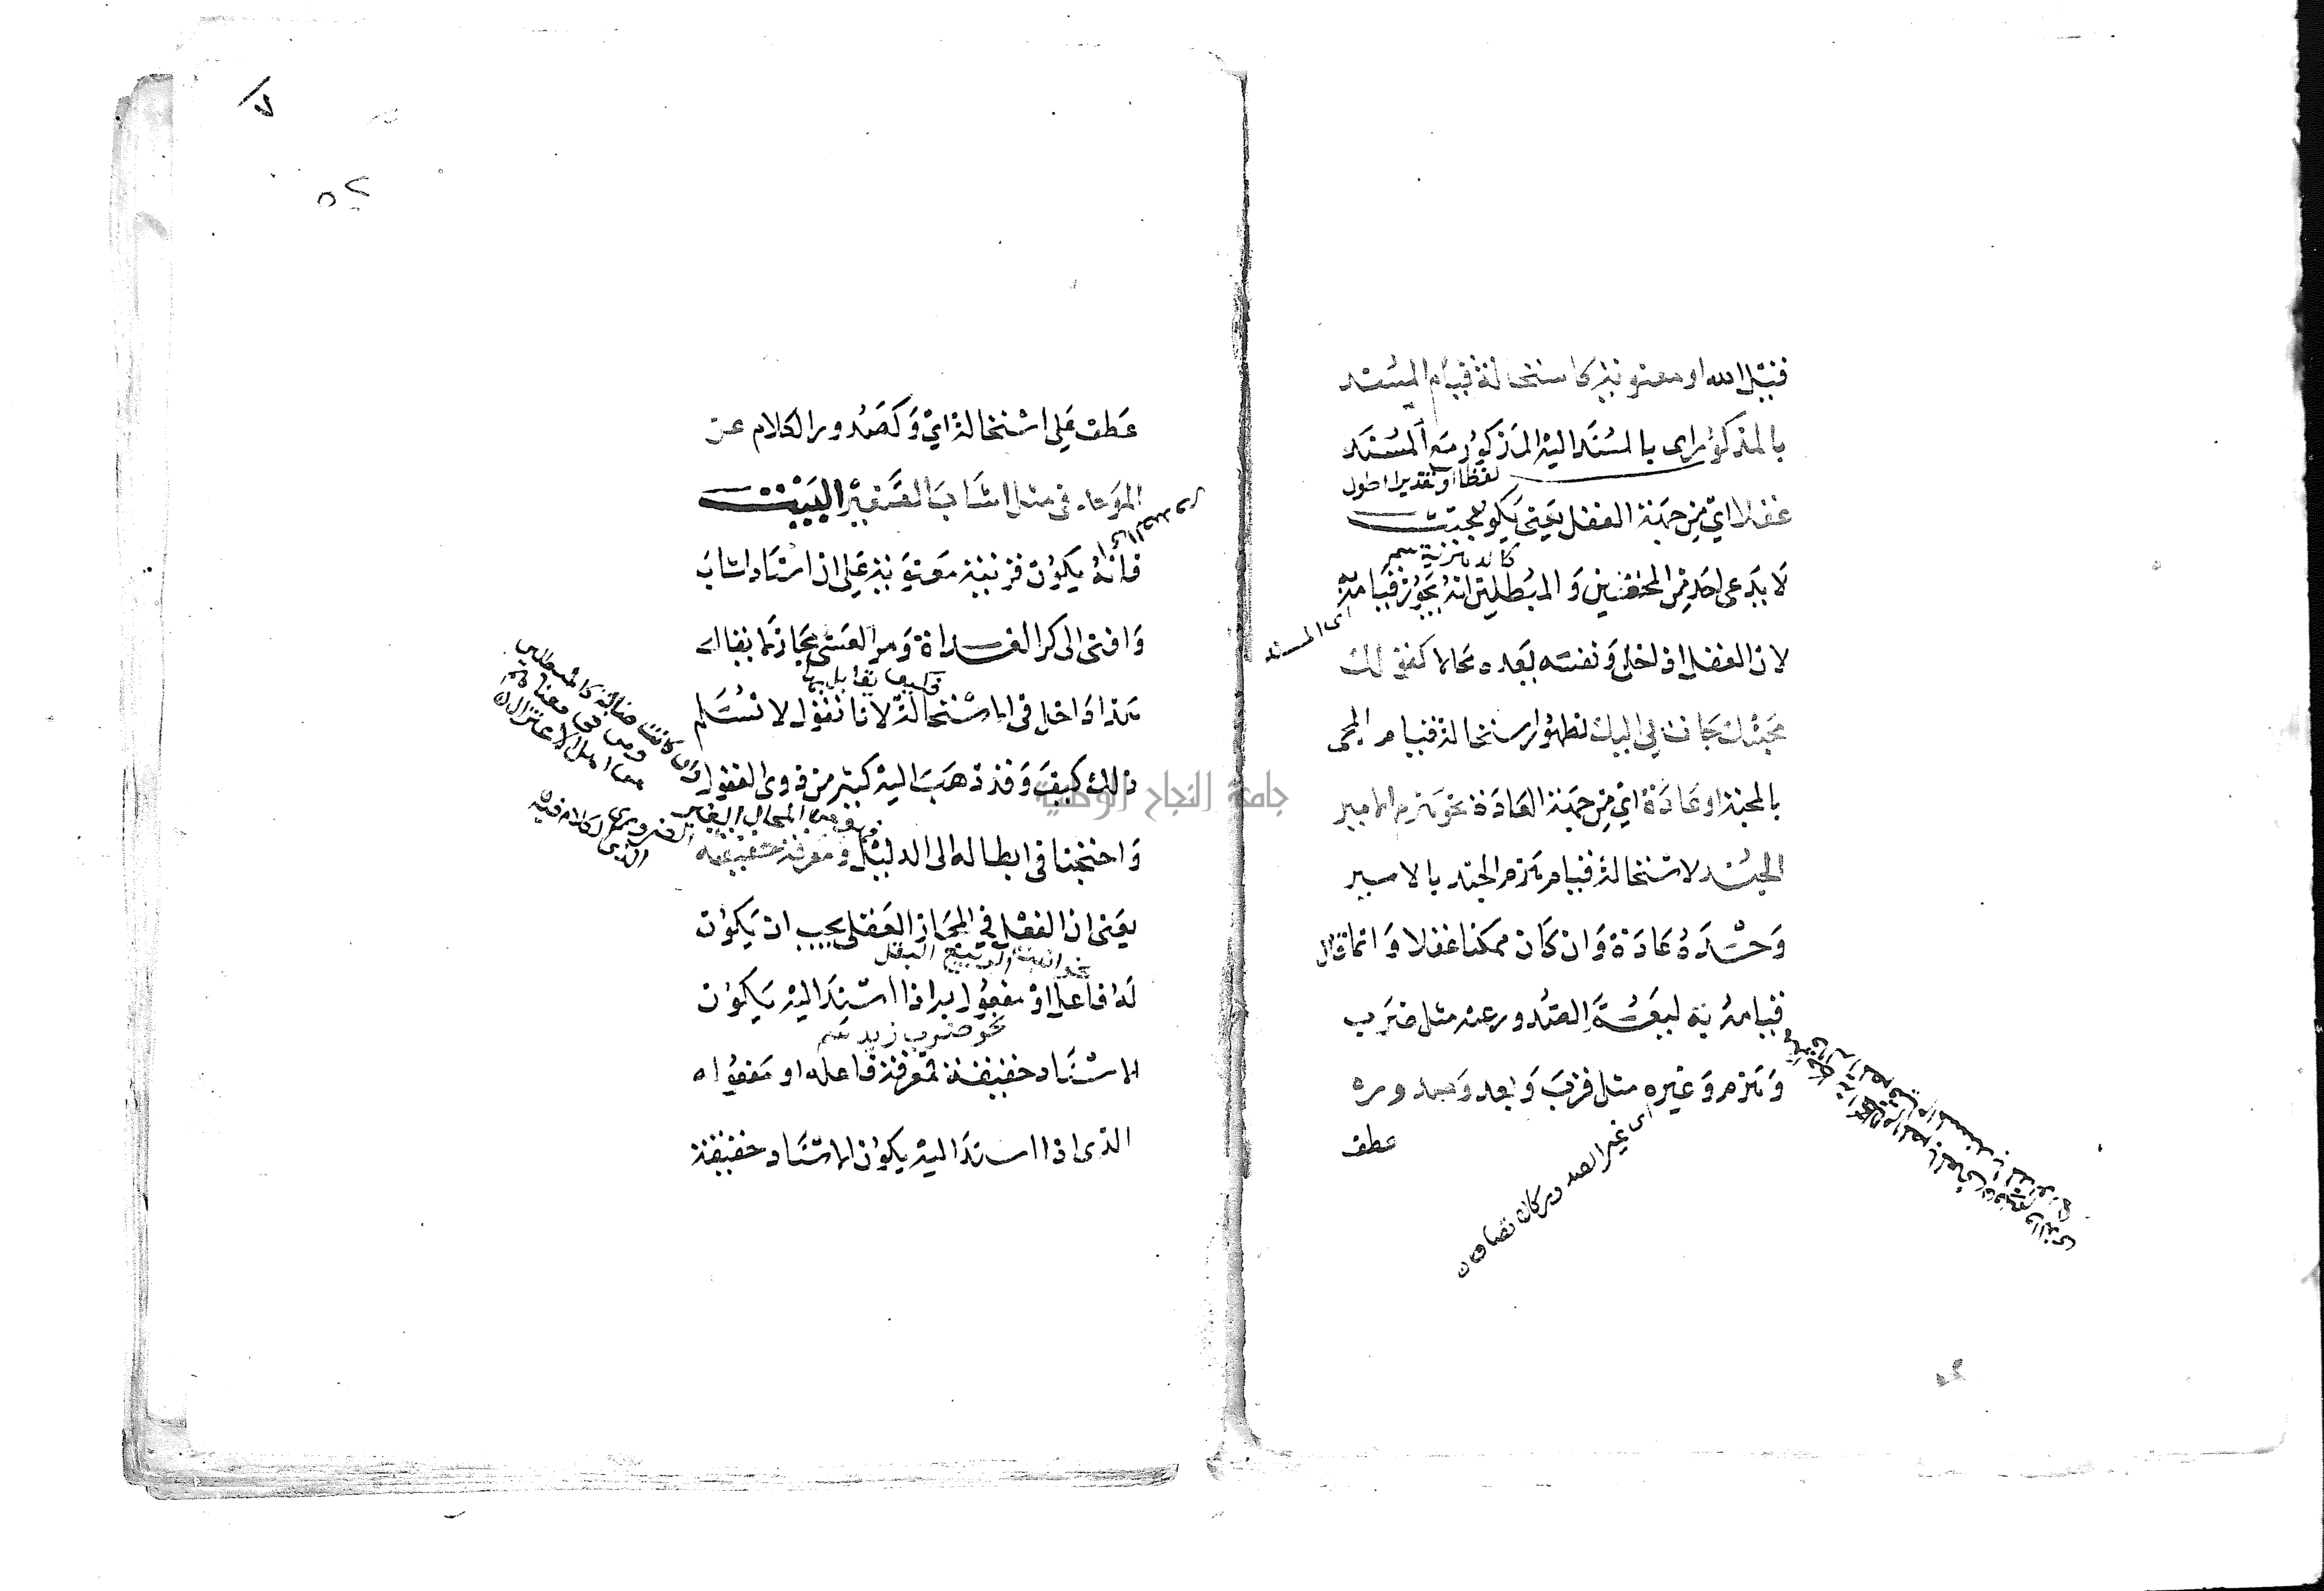 قيل الله او معنوية كاستحالة قيام المسند
بالمذكور اى بالمسند اليه المذكور مع المسند
لفظا او تقديرا اطول
عقلا اي من جهة العقل يعني يكون بحيث
كالدهرية
لا يدعى احد من المحققين والمبطلين انه يجوز قيامه به
اى المسند
لان العقل اذا خلى ونفسه يعده محالا كقولك
محبتك جات بي اليك لظهور استحالة قيام المجى
بالمحبة او عادة اي من جهة العادة نحو هزم الامير
الجند لاستحالة قيام هزم الجند بالامير
وحده عادة وان كان ممكنا عقلا وانما قال
قيامه به ليعم الصدور عنه مثل ضرب
وهزم وغيره مثل قرب وبعد وصدوره
اى غير الصدور كان
عطف
عطف على استحالة اي وكصدور الكلام عن
الموحد في مثل اشاب الصغير البيت
فانه يكون قرينة معنوية على ان اسناد اشاب
وافنى الى كر الغداة ومر العشى مجاز لا يقال
فكيف تقابل بها
هذا داخل في الاستحالة لانا نقول لا نسلم
ذلك كيف وقد ذهب اليه كثير من ذوى العقول
واحتجنا في ابطاله الى الدليل ومعرفة حقيقته
يعنى ان الفعل في المجاز العقلي يجب ان يكون
نحو انبت الربيع البقل
له فاعل او مفعول به اذا اسند اليه يكون
نحو ضرب زيد عمر
الاسناد حقيقة فمعرفة فاعله او مفعوله
الذى اذا اسند اليه يكون الاسناد حقيقة
جامعة النجاح الوطنية